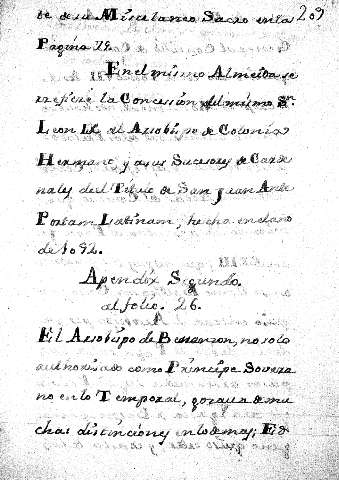 te de su Miscelaneo Sacro en la 209
Pagina 72.
En el mismo Almeida se
refiere la Concesion del mismo Sn.
Leon IX. al Arzobispo de Colonia
Hermano, y a sus Sucesores de Carde
nales del Titulo de San Juan Ante
Portam Latinam, hecha en el año
de 1052.
Apendix Segundo.
al folio. 26.
El Arzobispo de Besanzon, no solo
authorizado como Principe Sovera
no en lo Temporal, goza va de mu
chas distinciones en lo demas; Es